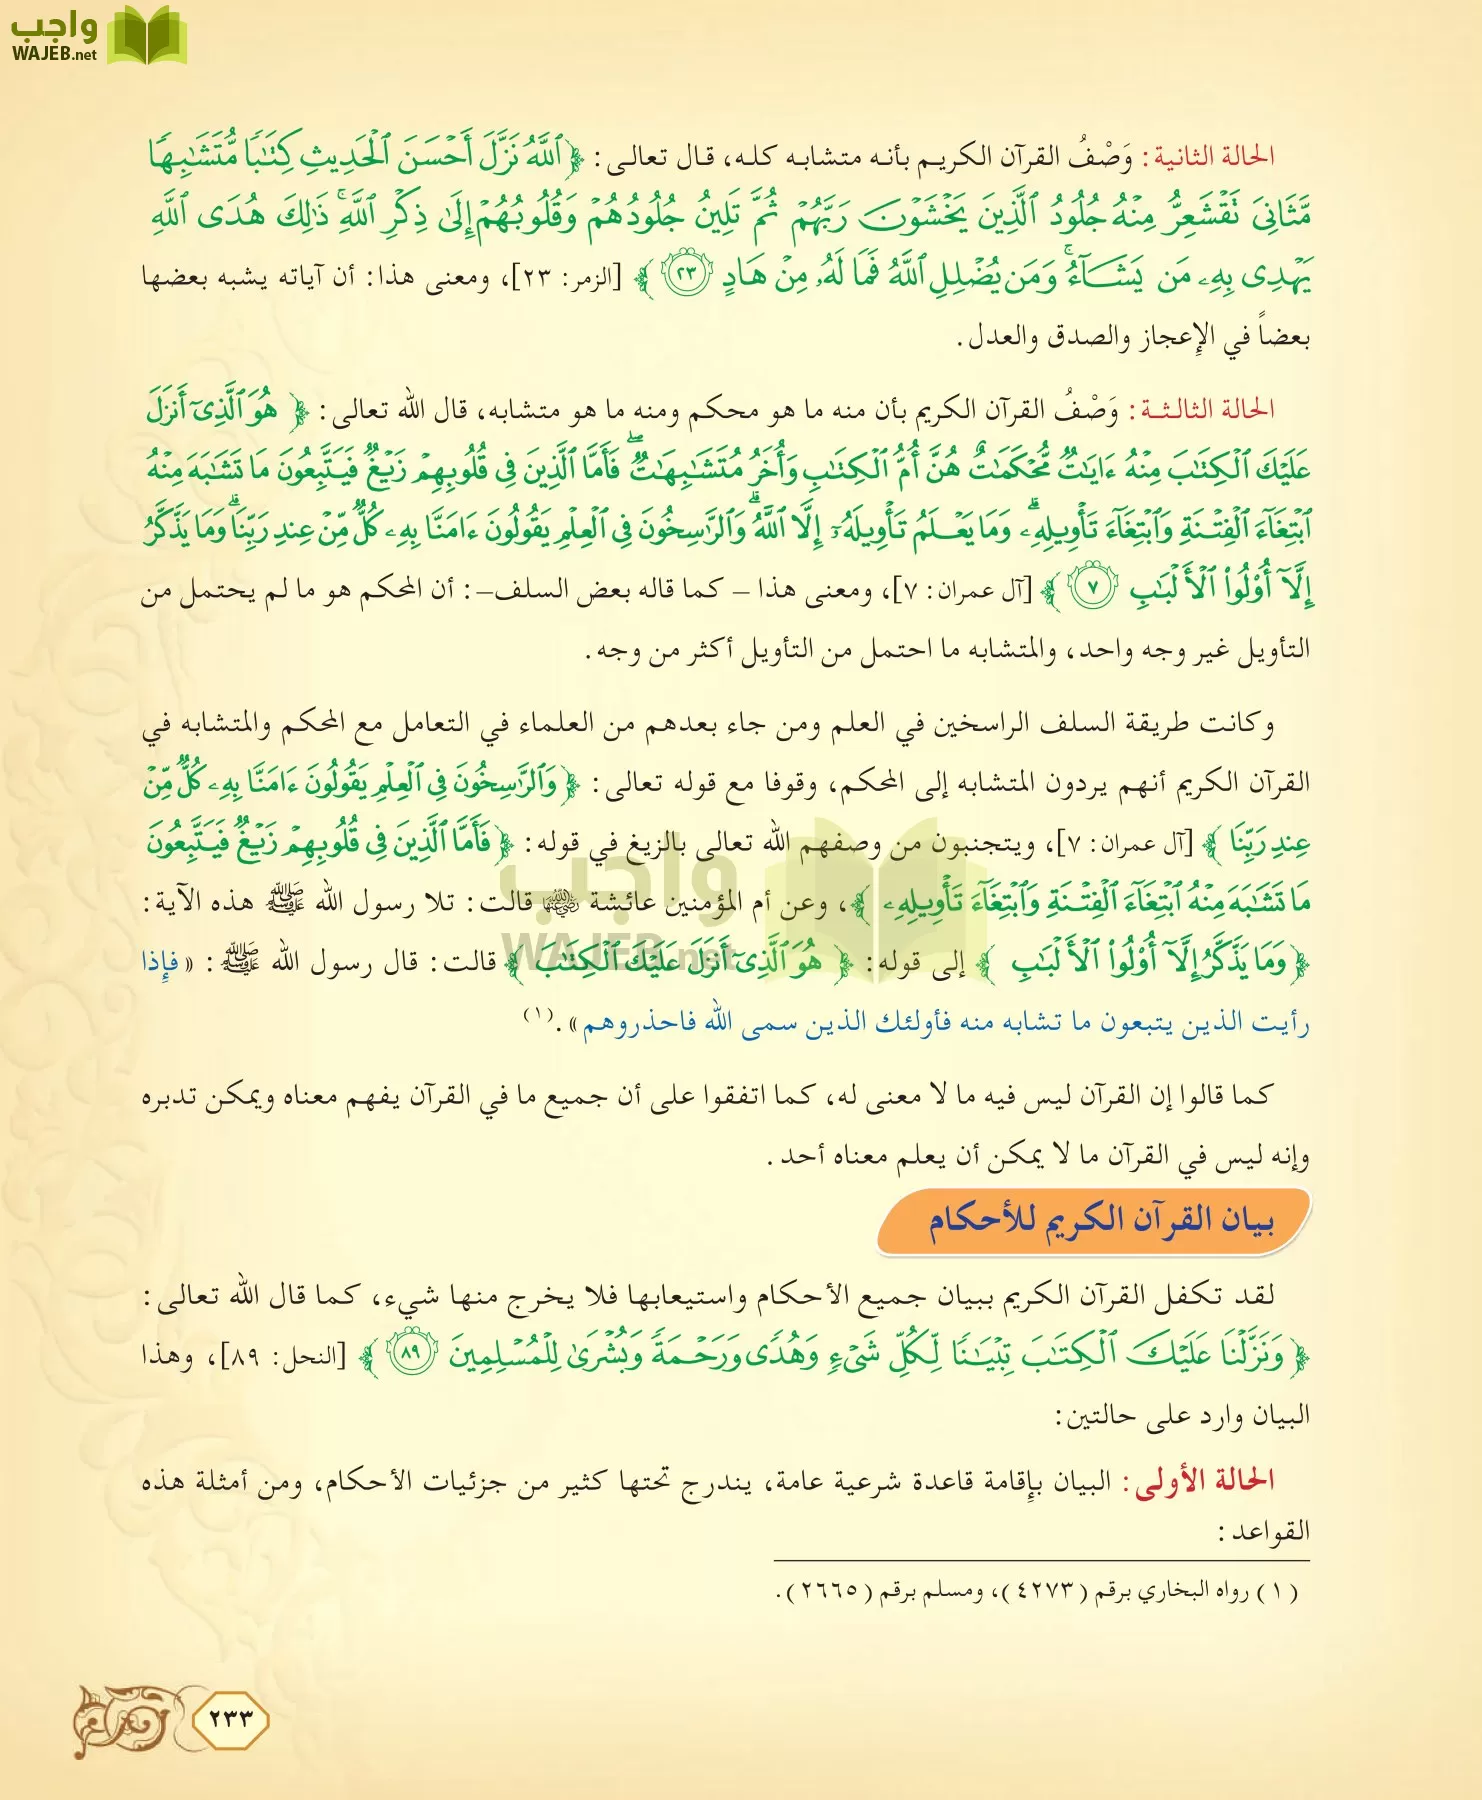 واجب
WAJEB.net
الحالة الثانية: وَصْفُ القرآن الكريم بأنه متشابه كله، قال تعالى: ﴿ ٱللَّهُ نَزَّلَ أَحْسَنَ ٱلْحَدِيثِ كِتَٰبًا مُّتَشَٰبِهًا
مَّثَانِىَ تَقْشَعِرُّ مِنْهُ جُلُودُ ٱلَّذِينَ يَخْشَوْنَ رَبَّهُمْ ثُمَّ تَلِينُ جُلُودُهُمْ وَقُلُوبُهُمْ إِلَىٰ ذِكْرِ ٱللَّهِ ۚ ذَٰلِكَ هُدَى ٱللَّهِ
يَهْدِى بِهِۦ مَن يَشَآءُ ۚ وَمَن يُضْلِلِ ٱللَّهُ فَمَا لَهُۥ مِنْ هَادٍ ٢٣ ﴾ [الزمر: ٢٣]، ومعنى هذا: أن آياته يشبه بعضها
بعضاً في الإعجاز والصدق والعدل.
الحالة الثالثة: وَصْفُ القرآن الكريم بأن منه ما هو محكم ومنه ما هو متشابه، قال الله تعالى: ﴿ هُوَ ٱلَّذِىٓ أَنزَلَ
عَلَيْكَ ٱلْكِتَٰبَ مِنْهُ ءَايَٰتٌ مُّحْكَمَٰتٌ هُنَّ أُمُّ ٱلْكِتَٰبِ وَأُخَرُ مُتَشَٰبِهَٰتٌ ۖ فَأَمَّا ٱلَّذِينَ فِى قُلُوبِهِمْ زَيْغٌ فَيَتَّبِعُونَ مَا تَشَٰبَهَ مِنْهُ
ٱبْتِغَآءَ ٱلْفِتْنَةِ وَٱبْتِغَآءَ تَأْوِيلِهِۦ ۗ وَمَا يَعْلَمُ تَأْوِيلَهُۥٓ إِلَّا ٱللَّهُ ۗ وَٱلرَّٰسِخُونَ فِى ٱلْعِلْمِ يَقُولُونَ ءَامَنَّا بِهِۦ كُلٌّ مِّنْ عِندِ رَبِّنَا ۗ وَمَا يَذَّكَّرُ
إِلَّآ أُو۟لُوا۟ ٱلْأَلْبَٰبِ ٧ ﴾ [آل عمران: ٧]، ومعنى هذا – كما قاله بعض السلف–: أن المحكم هو ما لم يحتمل من
التأويل غير وجه واحد، والمتشابه ما احتمل من التأويل أكثر من وجه.
وكانت طريقة السلف الراسخين في العلم ومن جاء بعدهم من العلماء في التعامل مع المحكم والمتشابه في
القرآن الكريم أنهم يردون المتشابه إلى المحكم، وقوفا مع قوله تعالى: ﴿ وَٱلرَّٰسِخُونَ فِى ٱلْعِلْمِ يَقُولُونَ ءَامَنَّا بِهِۦ كُلٌّ مِّنْ
عِندِ رَبِّنَا ﴾ [آل عمران: ٧]، ويتجنبون من وصفهم الله تعالى بالزيغ في قوله: ﴿ فَأَمَّا ٱلَّذِينَ فِى قُلُوبِهِمْ زَيْغٌ فَيَتَّبِعُونَ
مَا تَشَٰبَهَ مِنْهُ ٱبْتِغَآءَ ٱلْفِتْنَةِ وَٱبْتِغَآءَ تَأْوِيلِهِۦ ﴾، وعن أم المؤمنين عائشة رضي الله عنها قالت: تلا رسول الله ﷺ هذه الآية:
﴿ وَمَا يَذَّكَّرُ إِلَّآ أُو۟لُوا۟ ٱلْأَلْبَٰبِ ﴾ إلى قوله: ﴿ هُوَ ٱلَّذِىٓ أَنزَلَ عَلَيْكَ ٱلْكِتَٰبَ ﴾ قالت: قال رسول الله ﷺ: «فإذا
رأيت الذين يتبعون ما تشابه منه فأولئك الذين سمى الله فاحذروهم».(١)
واجب
WAJEB.net
كما قالوا إن القرآن ليس فيه ما لا معنى له، كما اتفقوا على أن جميع ما في القرآن يفهم معناه ويمكن تدبره
وإنه ليس في القرآن ما لا يمكن أن يعلم معناه أحد.
بيان القرآن الكريم للأحكام
لقد تكفل القرآن الكريم ببيان جميع الأحكام واستيعابها فلا يخرج منها شيء، كما قال الله تعالى:
﴿ وَنَزَّلْنَا عَلَيْكَ ٱلْكِتَٰبَ تِبْيَٰنًا لِّكُلِّ شَىْءٍ وَهُدًى وَرَحْمَةً وَبُشْرَىٰ لِلْمُسْلِمِينَ ٨٩ ﴾ [النحل: ٨٩]، وهذا
البيان وارد على حالتين:
الحالة الأولى: البيان بإقامة قاعدة شرعية عامة، يندرج تحتها كثير من جزئيات الأحكام، ومن أمثلة هذه
القواعد:
(١) رواه البخاري برقم (٤٢٧٣)، ومسلم برقم (٢٦٦٥).
٢٣٣